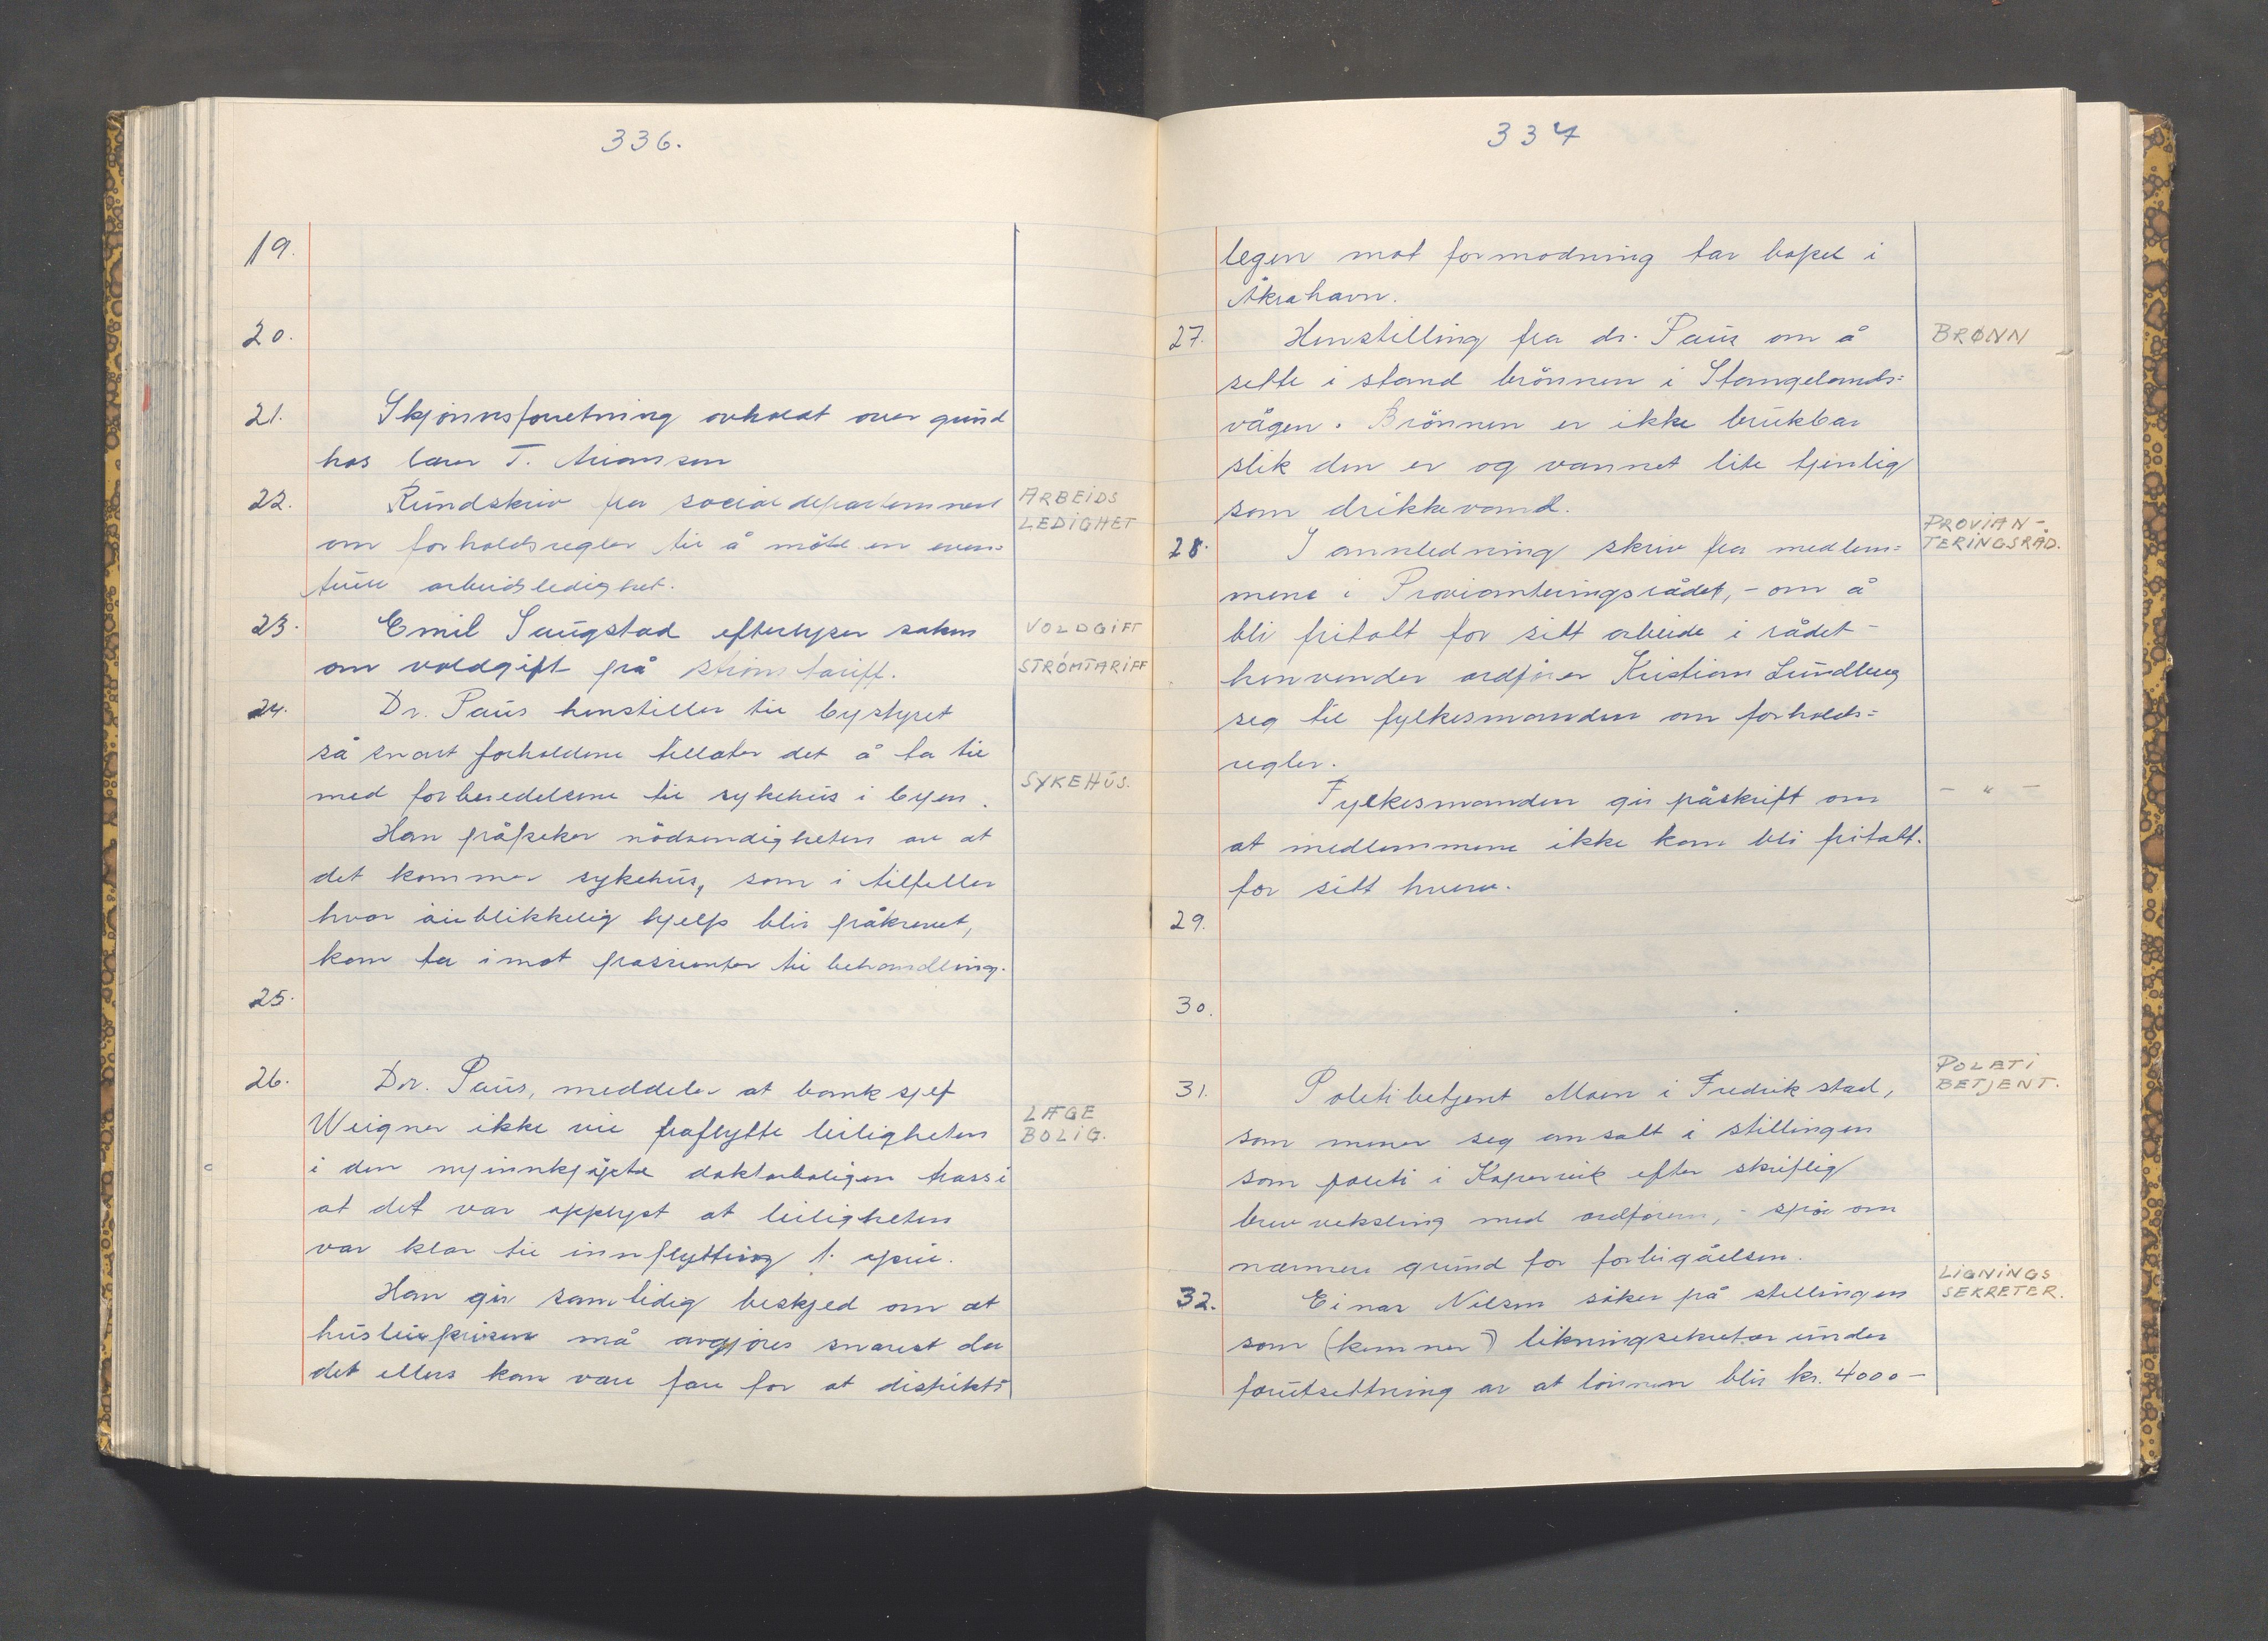 336.
19.
20.
21. Skjönnsforretning avholdt over grund
hos lærer T. Arians sen
22. Rundskriv fra socialdepartementet
ARBEIDS
LEDIGHET
om forholdsregler til å möte en even=
tuell arbeidsledighet.
23. Emil Saugstad efterlyser saken
VOLDGIFT
om voldgift på strömtariff.
STRÖMTARIFF
24. Dr. Paus henstiller til bystyret
så snart forholdene tillater det å ta til
med forberedelsene til sykehus i byen.
SYKEHUS.
Han påpeker nödvendigheten av at
det kommer sykehus, som i tilfeller
hvor öieblikkelig hjelp blir påkrevet,
kan ta imot passienter til behandling.
25.
26. Dr. Paus, meddeler at banksjef
Weigner ikke vil fraflytte leiligheten
LÆGE
BOLIG.
i den nyinnkjöpte doktorboligen trass i
at det var opplyst at leiligheten
var klar til innflytting 1. april.
Han gir samtidig beskjed om at
husleieprisen må avgjöres snarest da
det ellers kan være fare for at distrikts
337
legen mot formodning tar bopel i
Åkrahavn.
27. Henstilling fra dr. Paus om å
BRØNN
sette i stand brönnen i Stangelands=
vågen. Brönnen er ikke brukbar
slik den er og vannet lite tjenlig
som drikkevand.
28. I annledning skriv fra medlem=
PROVIAN-
TERINGSRÅD.
mene i Provianteringsrådet, - om å
bli fritatt for sitt arbeide i rådet -
henvender ordförer Kristian Lundberg
seg til fylkesmanden om forholds=
regler.
Fylkesmanden gir påskrift om
- " -
at medlemmene ikke kan bli fritatt.
for sitt hverv.
29.
30.
31. Politibetjent Moen i Fredrikstad,
POLETI
BETJENT.
som mener seg ansatt i stillingen
som politi i Kopervik efter skriftlig
brevveksling med ordföreren, - spör om
nærmere grund for forbigåelsen.
32. Einar Nilsen söker på stillingen
LIGNINGS
SEKRETER.
som (kemner) likningsekretær under
forutsettning av at lönnen blir kr. 4000-